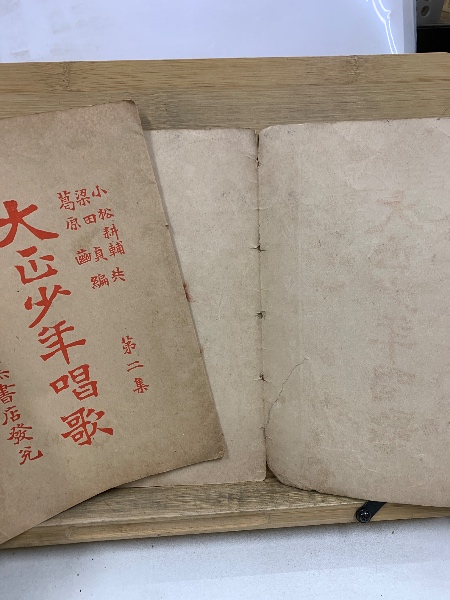 小松耕輔
梁田貞
葛原
共編
大正少年唱歌
第二集
書店發兌